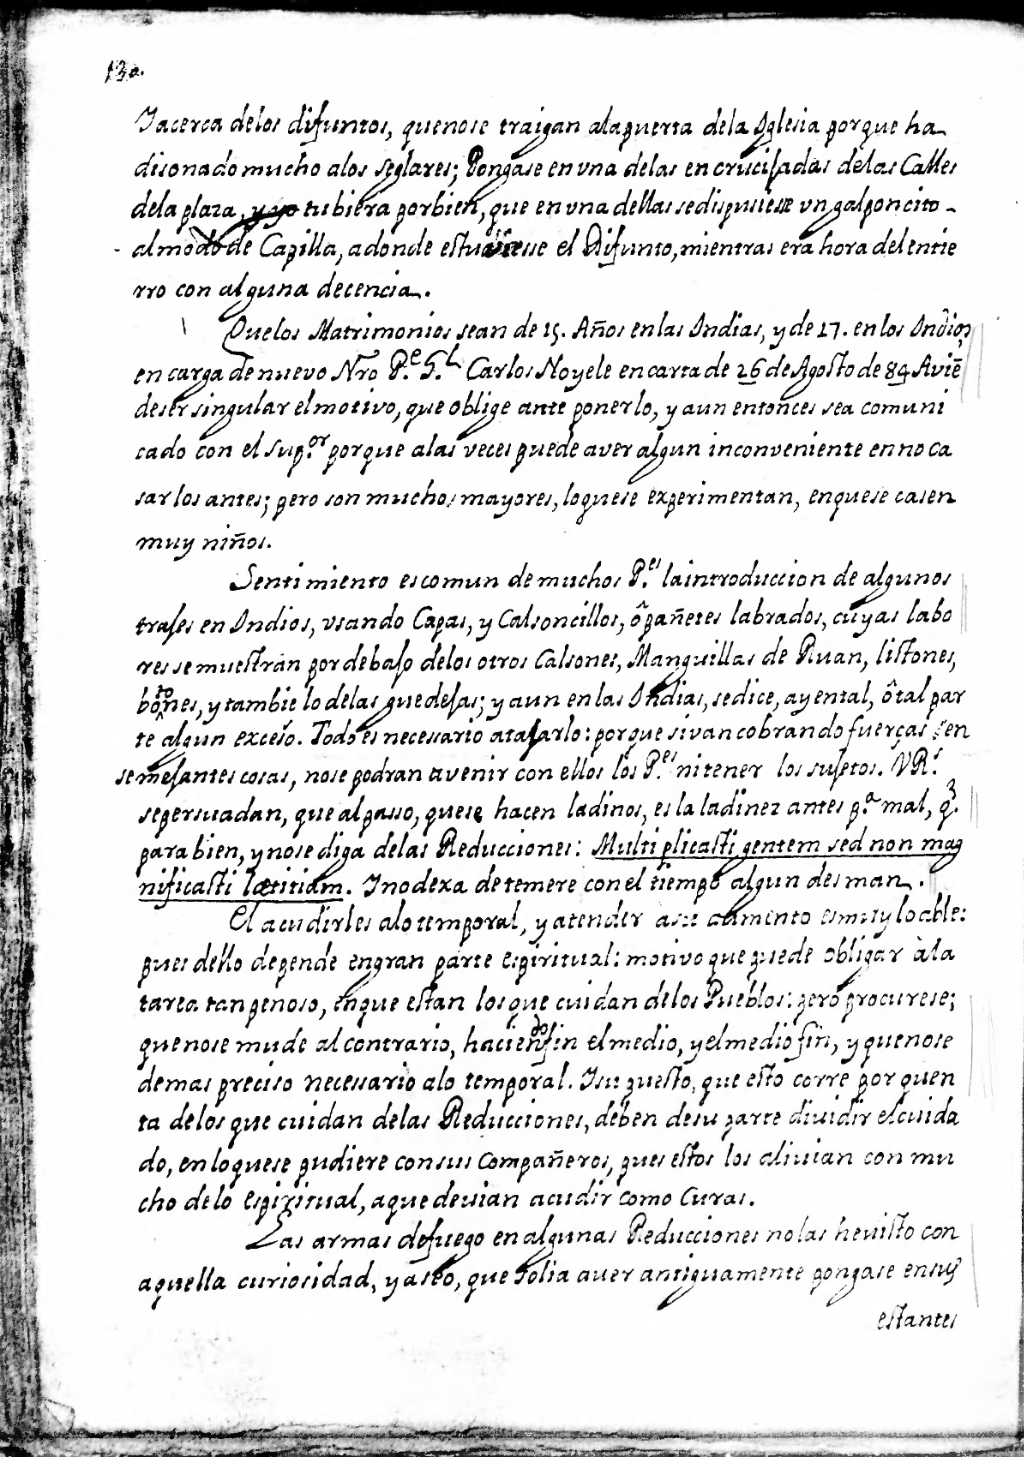 130.
Iacerca delos difuntos, quenose traigan alapuerta dela Iglesia porque ha
disonado mucho alos seglares; Pongase en vna delas en crucifadas delas Calles
dela plaza, y yo tubiera porbien, que en vna dellas sedispusiesse vn galponcito
almodo de Capilla, adonde estuviesse el Difunto, mientras era hora del entie
rro con alguna decencia.
Quelos Matrimonios sean de 15. Años en las Indias, y de 17. en los Indios,
en carga de nuevo Nro P.e G.l Carlos Noyele en carta de 26 de Agosto de 84 Aviẽ
deser singular el motivo, que oblige ante ponerlo, y aun entonces sea comuni
cado con el Sup.or porque alas veces puede aver algun inconveniente en no ca
sarlos antes; pero son muchos mayores, loquese experimentan, enquese casen
muy niños.
Sentimiento es comun de muchos P.es laintroduccion de algunos
trafes en Indios, vsando Capas, y Calsoncillos, ô pañetes labrados, cuyas labo
res se muestran por debafo delos otros Calsones, Manguillas de Ruan, listones,
botones, y tambie lo delas guedefas; y aun en las Indias, sedice, ay ental, ô tal par
te algun exceso. Todo es necessario atafarlo: porque si van cobrando fuerças en
semefantes cosas, nose podran avenir con ellos los P.es ni tener los sufetos. VR.s
sepersuadan, que alpasso, quese hacen ladinos, es la ladinez antes p.a mal, q.
para bien, y nose diga delas Reducciones: Multiplicasti gentem sed non mag
nificasti lætitiam. I no dexa de temere con el tiempo algun desman.
El acudirles alo temporal, y atender a su aumento es muy loable:
pues dello depende en gran parte espiritual: motivo que puede obligar à la
tarea tan penoso, en que estan los que cuidan delos Pueblos: pero procurese;
que nose mude al contrario, haciendo fin el medio, y el medio fin, y que nose
de mas preciso necessario alo temporal. I supuesto, que esto corre por quen
ta delos que cuidan delas Reducciones, deben desu parte dividir el cuida
do, en loquese pudiere con sus Compañeros, pues estos los alivian con mu
cho delo Espiritual, aque devian acudir como Curas.
Las armas defuego en algunas Reducciones no las hevisto con
aquella curiosidad, y aseo, que solia aver antiguamente pongase en sus
estantes